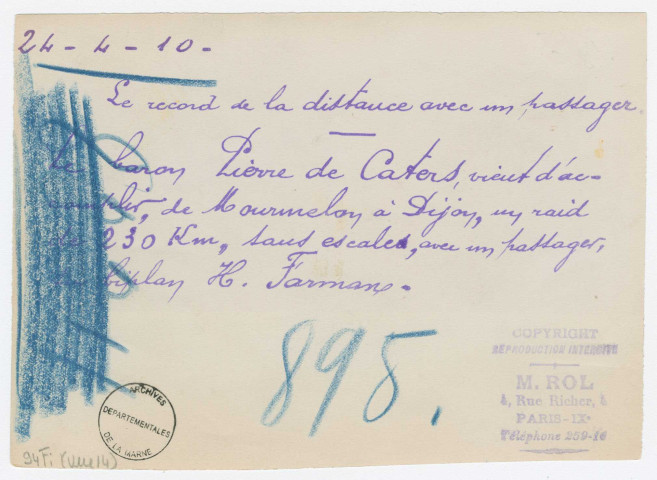 24 - 4 - 10 -
Le record de la distance avec un passager
Le baron Pierre de Caters, vient d'ac-
complir, de Mourmelon à Dijon, un raid
de 230 Km, sans escales, avec un passager,
sur biplan H. Farman. -
895.
COPYRIGHT
REPRODUCTION INTERDITE
M. ROL
4, Rue Richer, 4
PARIS-IXe
Téléphone 259-16
ARCHIVES
DEPARTEMENTALES
DE LA MARNE
94Fi (vue 14)